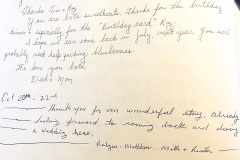 Thanks Tom & Roy
You are both sweethearts. Thanks for the birthday
dinner & especially for the "Birthday card" Roy
I hope we can come back in July next year. You will
probably need help picking blueberries.
We love you both
Dad & Mom
Oct 20th - 22nd
Thank you for our wonderful stay. Already
looking forward to coming back and
a wedding here.
Matthew